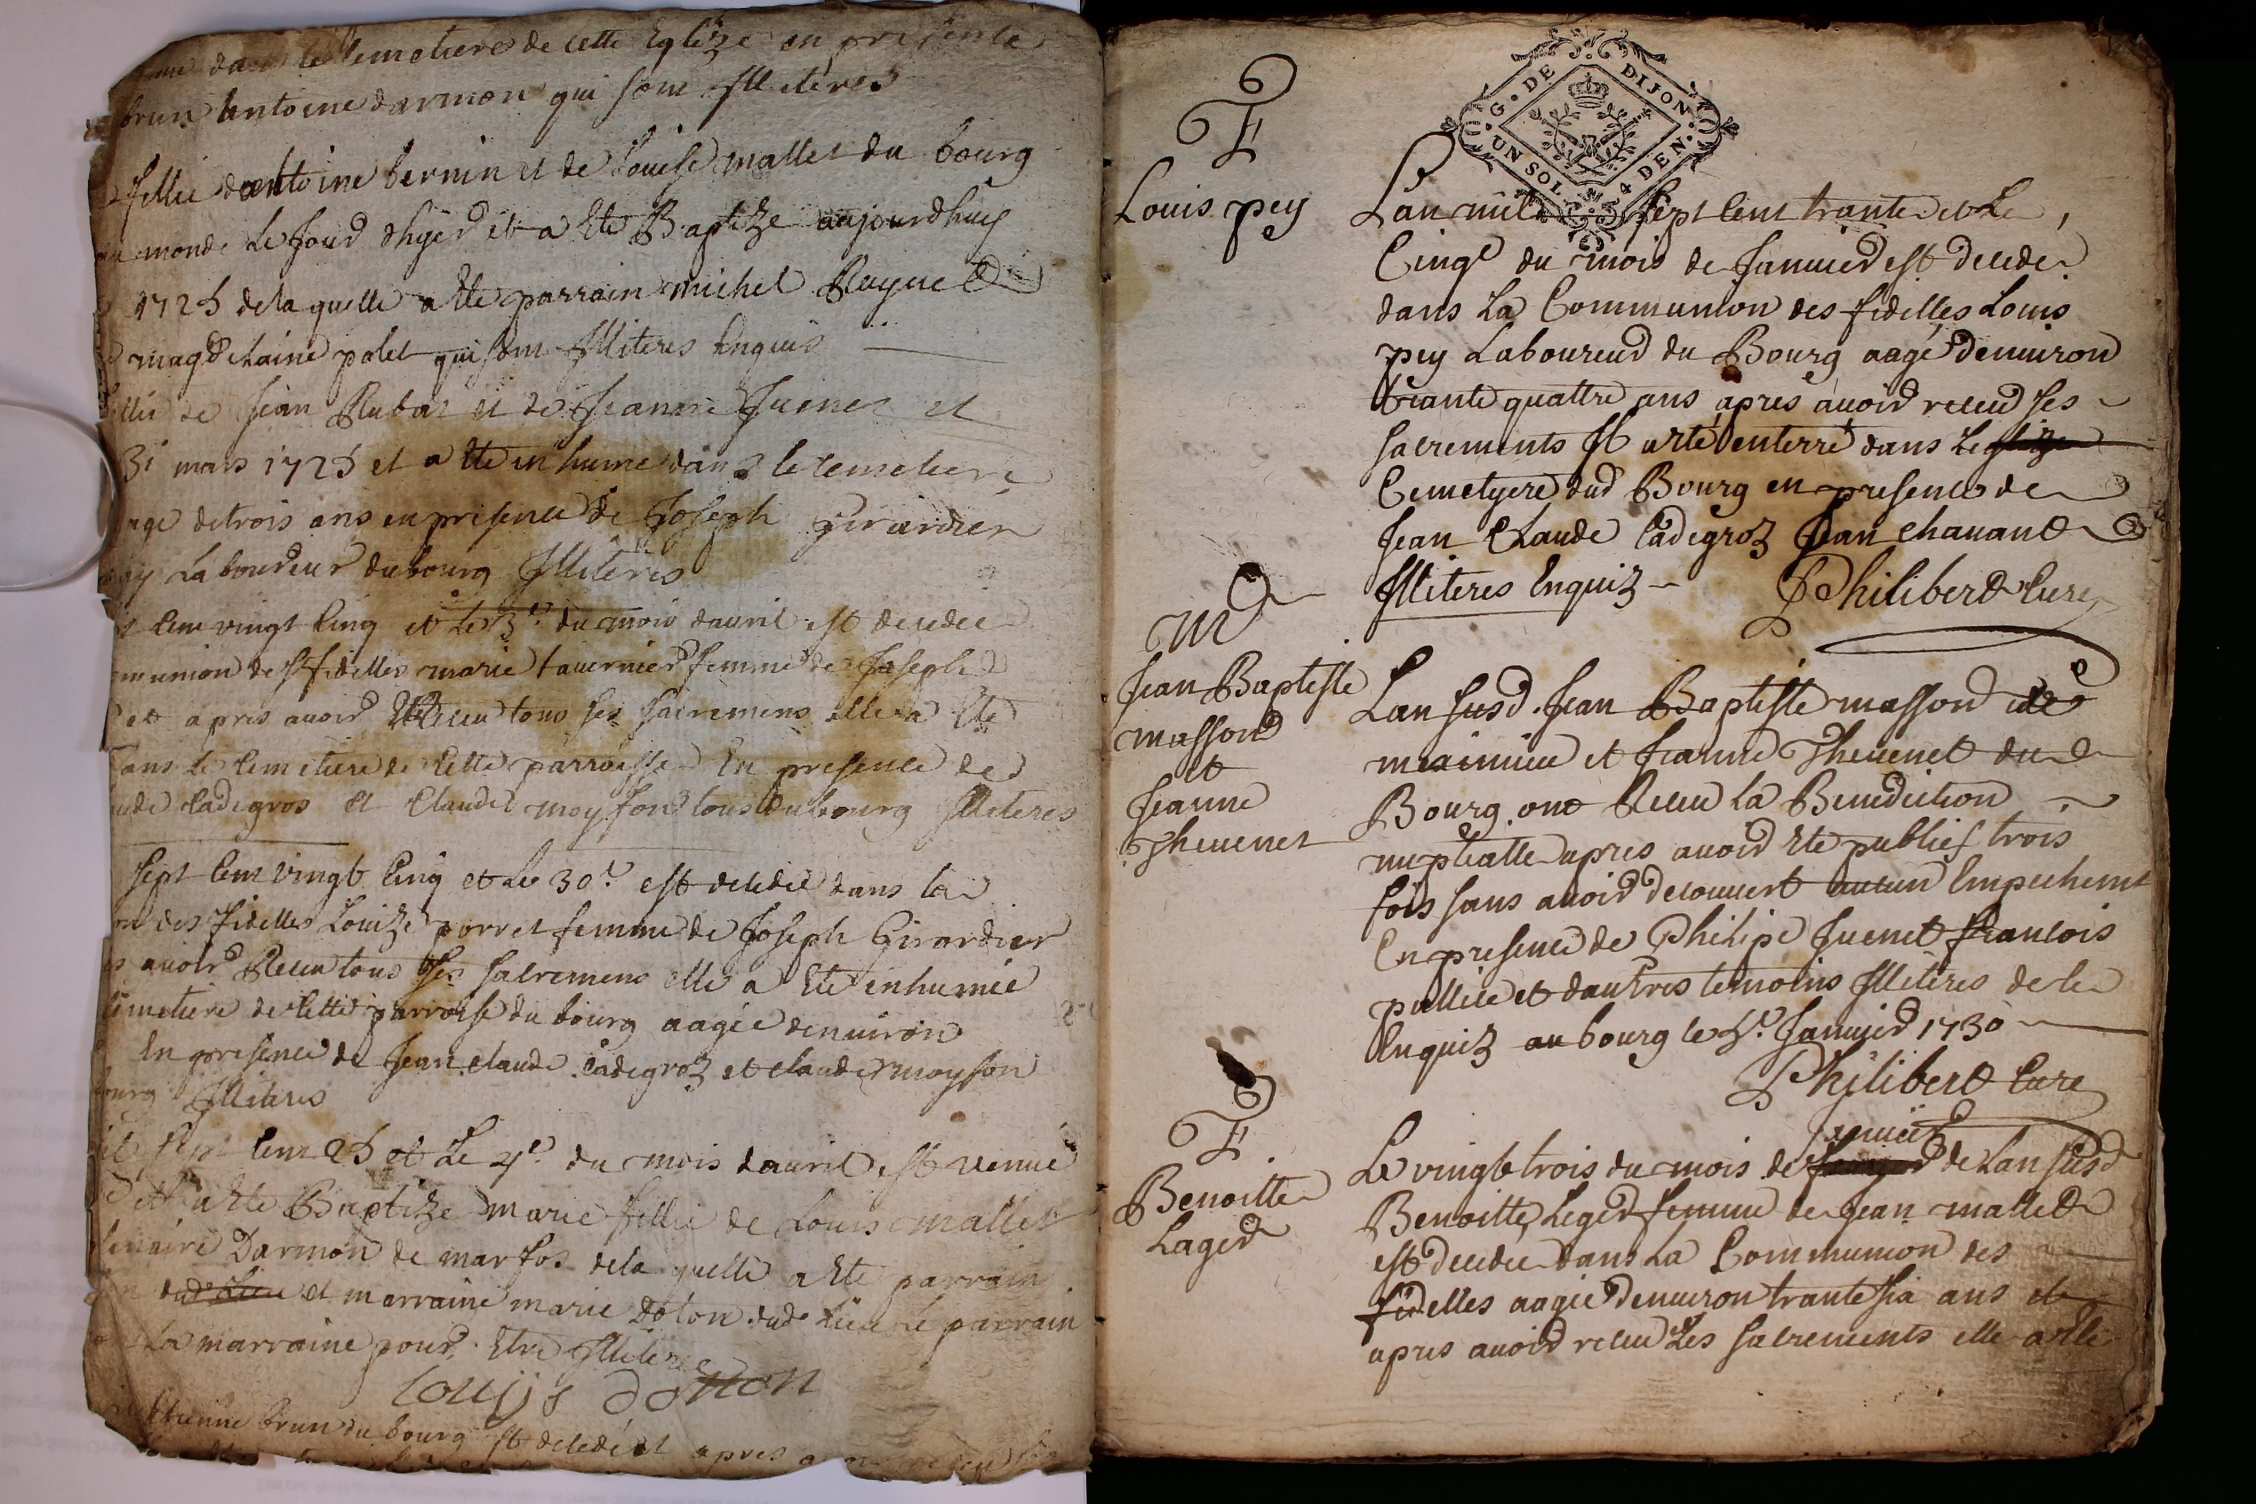 dans le Cemetiere de cette Eglize en presence
brun Antoine darmon qui sont Illiteres
fillie dantoine bernin et de Louise mallet du bourg
au monde Le Jourd dhyerd et a Ete Baptize aujourdhuy
1725 de la quelle a Ete parrain michel
magdelaine polet qui sont Illiteres Enquis
fillie de Jean Rubat et de Jeanne Juenet et
31 mars 1725 et a Ete inhume dans le Cemetiere
age de trois ans en presence de Joseph Girardier
Laboureur du bourg Illiteres
Cent vingt Cinq et Le du mois davril est decedée
munion des fidelles marie tavernierd femme de Joseph
et apres avoird Receu tous ses sacremens elle a Ete
dans le Cemetiere de Cette parroisse En presence de
Cadegros et Claude moyson tous du bourg Illiteres
sept Cent vingt Cinq et Le 30e est decedée dans la
des fidelles Louize porret femme de Joseph Girardier
avoird Receu tous ses sacremens elle a Ete inhumée
Cimetiere de Cette parroisse du bourg aagée denviron
En presence de Jean Claude Cadegroz et Claude moyson
bourg Illiteres
sept Cent 25 et Le 4e du mois davril est venue
et a Ete Baptize marie fillie de Louis mallet
Darmon de marfos de la quelle a Ete parrain
dud Lieu et marraine marie Doton dud Lieu Le parrain
La marraine pour Etre Illitere
Louys doton
Etienne brun du bourg est decedé et apres
G. DE DIJON
UN SOL. 4 DEN.
F
Louis pey
Lan mil sept Cent trante et Le
Cinqe du mois de Januierd est decede
dans La Communion des fidelles Louis
pey Laboureurd du Bourg aagé denuiron
trante quattre ans apres auoird receud ses
sacrements Il a eté enterré dans Leglize
Cemetyere dud Bourg en presence de
Jean Claude Cadegroz Jean chauant
Illiteres Enquiz
Philibert Cure
M
Jean Baptiste
massond
et
Jeanne
Theuenet
Lan susd. Jean Baptiste massond de
meximieu et Jeanne Theuenet du
Bourg ont Receu La Benediction
nuptialle apres auoird Ete publies trois
fois sans auoird decouuert aucun Empechemt
En presence de Philipe Juenet francois
pullice et dautres temoins Illiteres de ce
Enquiz au bourg le 5e Januierd 1730
Philibert Cure
F
Benoitte
Lagerd
januierd
Le vingt trois du mois de de Lan susd
Benoitte Legerd femme de Jean mallet
est decedee dans La Communion des
fidelles aagée denuiron trante six ans et
apres auoird receu Les sacrements elle a ete